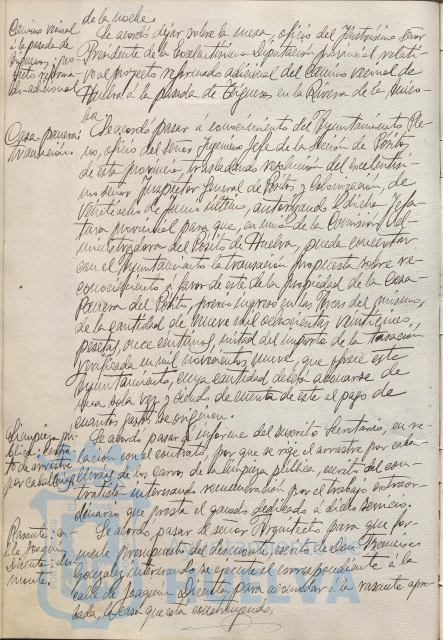 de la noche.
Camino vecinal
á la parada de
Se acordó dejar sobre la mesa, oficio del Ilustrísimo Señor
Presidente de la Excelentísima Diputación provincial relati-
vo al proyecto reformado adicional del Camino vecinal de
Huelva á la parada de en la Rivera de la
Casa panera:
transacción.
Se acordó pasar á conocimiento del Ayuntamiento Ple-
no, oficio del señor Ingeniero Jefe de la Sección de Pósitos
de esta provincia, trasladando resolución del excelentísi-
mo señor Inspector General de Pósitos y Colonización, de
veinticinco de Junio último, autorizando á dicha Jefa-
tura provincial para que, en unión de la Comisión Ad-
ministradora del Pósito de Huelva, pueda concertar
con el Ayuntamiento la transacción propuesta sobre re-
conocimiento á favor de este de la propiedad de la Casa
Panera del Pósito, previo ingreso en las Arcas del mismo,
de la cantidad de nueve mil ochocientas veinticinco
pesetas, once centimos, mitad del importe de la tasación
verificada en mil novecientos nueve, que ofrece este
Ayuntamiento, cuya cantidad deberá abonarse de
una sola vez y siendo de cuenta de este el pago de
cuantos gastos se originen.
Limpieza pú-
blica: contra-
to de arrastre
por caballerías
Se acordó pasar á informe del suscrito Secretario, en re-
lación con el contrato, por que se rige el arrastre por caba-
llerías de los carros de la limpieza pública, escrito del con-
tratista interesando remuneración por el trabajo extraor-
dinario que presta el ganado dedicado á dicho servicio.
Rasante: ca-
lle Joaquín
Dicenta: des-
monte.
Se acordó pasar al señor Arquitecto para que for-
mule presupuesto de desmonte, escrito de don Francisco
Gonzalez interesando se ejecute el correspondiente á la
calle de Joaquín Dicenta para acomodar á la rasante apro-
bada, la casa que esta construyendo.
HUELVA